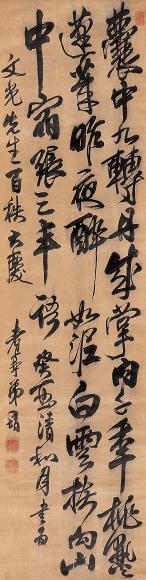 囊中九轉丹成掌內千年桃熟
蓬萊昨夜醉如泥白雲扶向山
中宿張三丰語 癸酉清和月書為
文光先生百秩大慶
弟